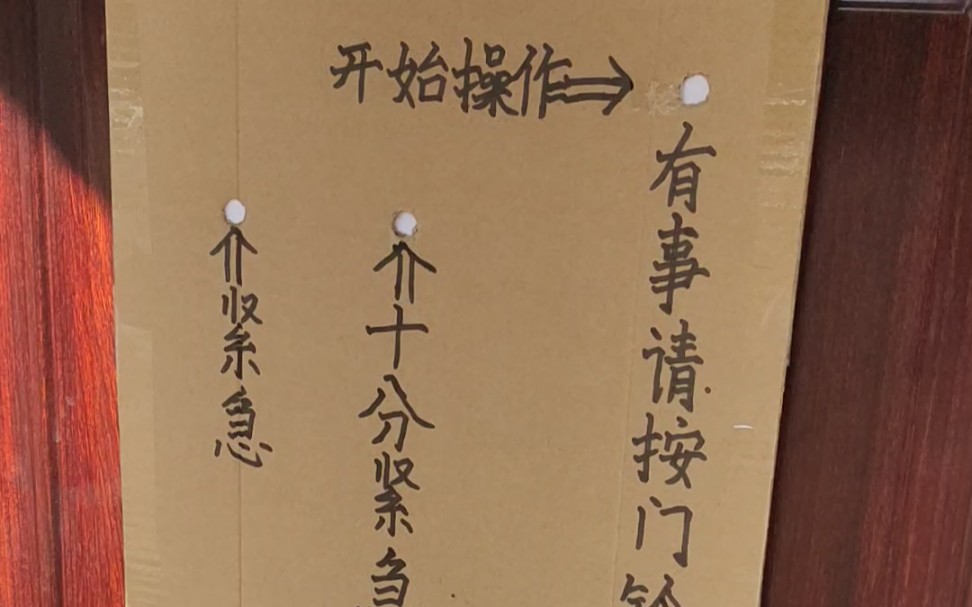 开始操作⇒
有事请按门铃
⇑十分紧急
⇑紧急